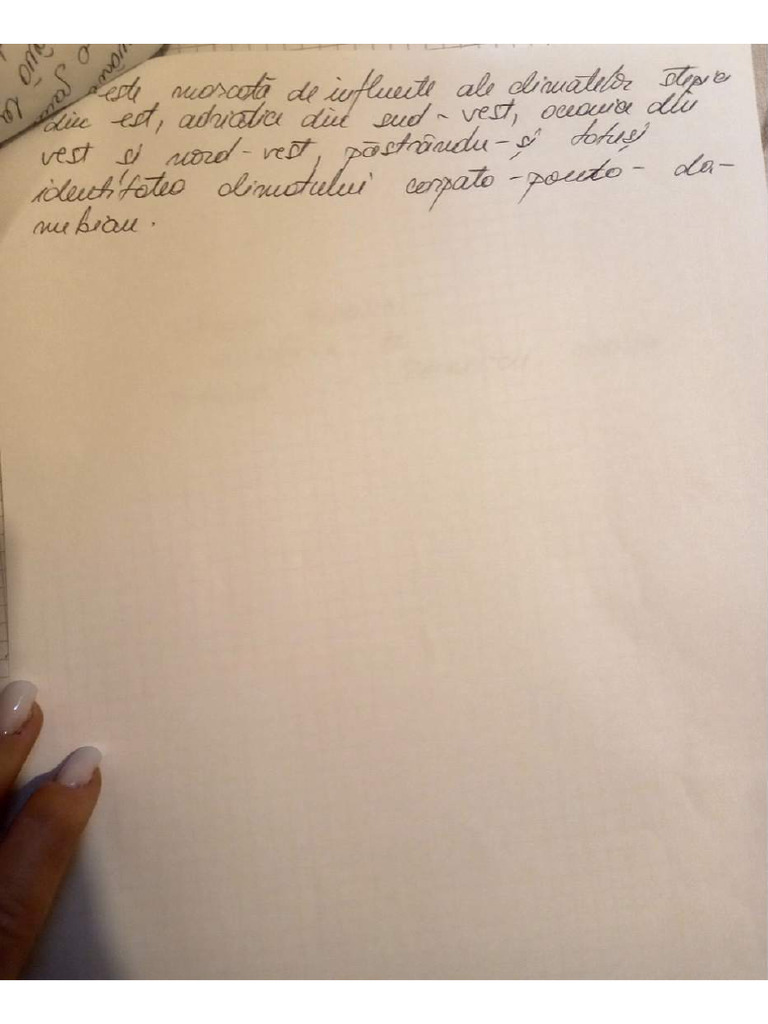 este marcată de influențe ale climatelor stepic
din est, adriatice din sud-vest, oceanice din
vest și nord-vest, păstrându-și totuși
identitatea climatului carpato-ponto-da-
nubian.